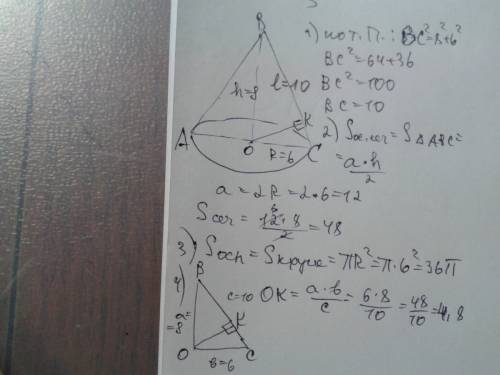 B
h=8
l=10
K
A
O
R=6
C
1) по т. П.: BC²=8²+6²
BC²=64+36
BC²=100
BC=10
2) Sос.сеч=S△ABC=
=a•h/2
a=2R=2•6=12
Sсеч=12•8/2=48
3) Sосн=Sкруга=πR²=π•6²=36π
4)
B
a=
=8
c=10
K
O
b=6
C
OK=a•b/c=6•8/10=48/10=4,8